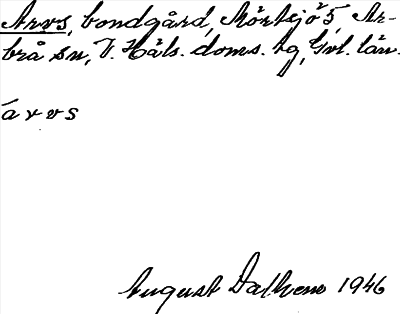 Arvs, bondgård, Mörtsjö 5, Ar-
brå sn, V. Häls. doms. hg, Gvl. län.
árvs
August Dalheno 1946